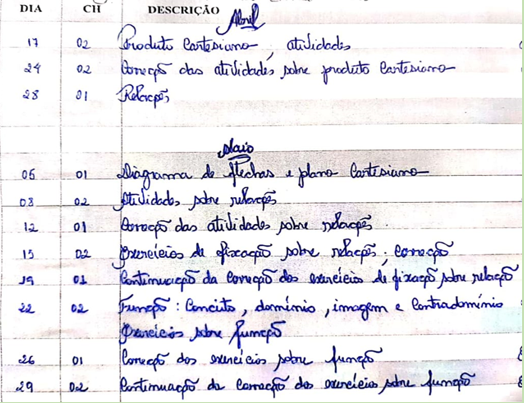 DIA CH DESCRIÇÃO
Abril
17 02 Produto Cartesiano, atividades
24 02 Correção das atividades sobre produto Cartesiano
28 01 Relações
Maio
05 01 Diagrama de flechas e plano Cartesiano
08 02 Atividades sobre relações
12 01 Correção das atividades sobre relações.
15 02 Exercícios de fixação sobre relações; correção
19 01 Continuação da correção dos exercícios de fixação sobre relação
22 02 Função: Conceito, domínio, imagem e Contradomínio
Exercícios sobre função
26 01 Correção dos exercícios sobre função
29 02 Continuação da correção dos exercícios sobre função